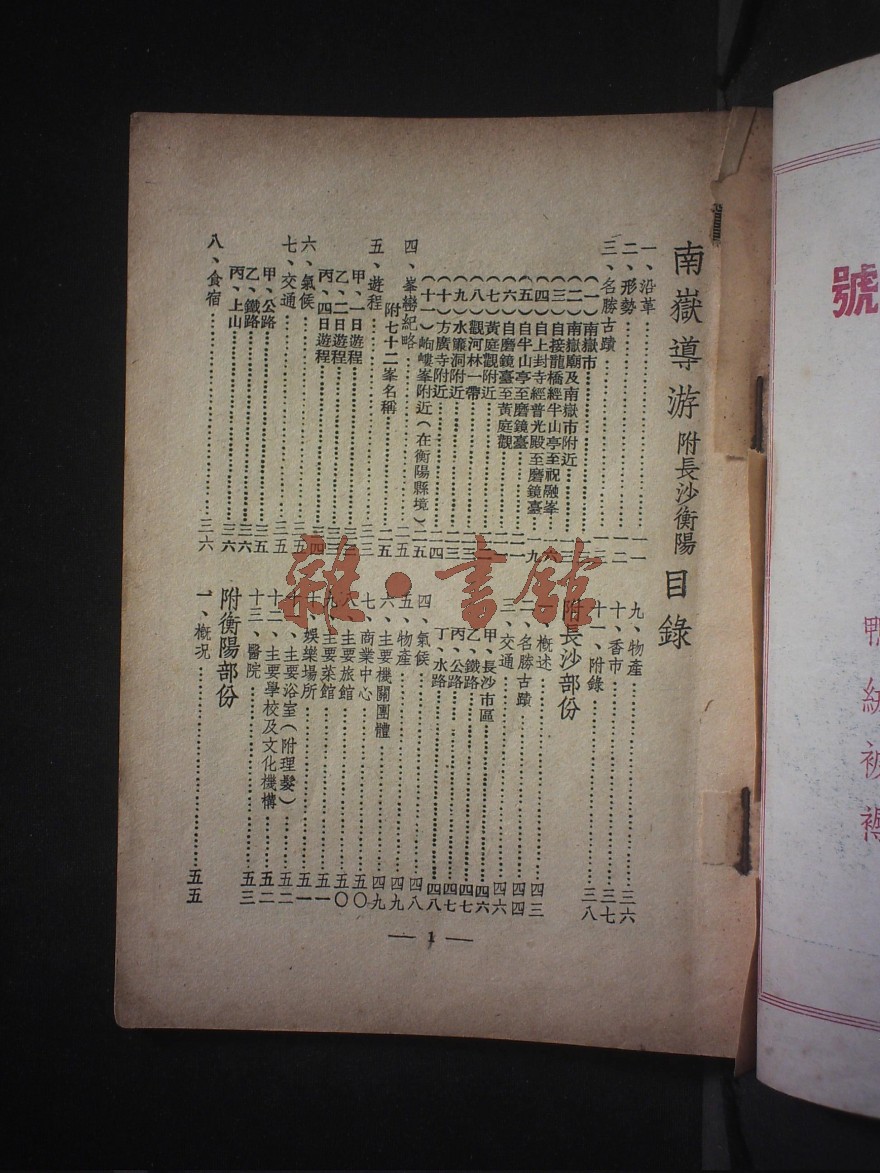 南嶽導游 附長沙衡陽 目錄
一、沿革……一
二、形勢……二
三、名勝古蹟
(一)南嶽市
(二)南嶽廟及南嶽市附近
(三)自接龍橋經半山亭至祝融峯
(四)自上封寺經普光殿至磨鏡臺……一九
(五)自半山亭至磨鏡臺
(六)自磨鏡臺至黃庭觀
(七)黃庭觀附近
(八)觀河林一帶……二三
(九)水簾洞附近……二三
(十)方廣寺附近……二四
(十一)岣嶁峯附近(在衡陽縣境)……二五
四、峯巒紀略……二五
附七十二峯名稱……二五
五、遊程……三三
甲、一日遊程
乙、二日遊程
丙、四日遊程
六、氣候……三五
七、交通……三五
甲、公路……三五
乙、鐵路……三六
丙、上山……三六
八、食宿……三六
九、物產……三六
十、香市……三七
十一、附錄……三八
附長沙部份
一、概述……四三
二、名勝古蹟……四四
三、交通……四六
甲、長沙市區……四六
乙、鐵路……四七
丙、公路……四七
丁、水路……四八
四、氣候……四八
五、物產……四九
六、主要機關團體……四九
七、商業中心……五〇
八、主要旅館……五〇
九、主要菜館……五一
十、娛樂場所……五一
十一、主要浴室(附理髮)……五二
十二、主要學校及文化機構……五二
十三、醫院……五三
附衡陽部份
一、概況……五五
— 1 —
雜·書館
號
被褥